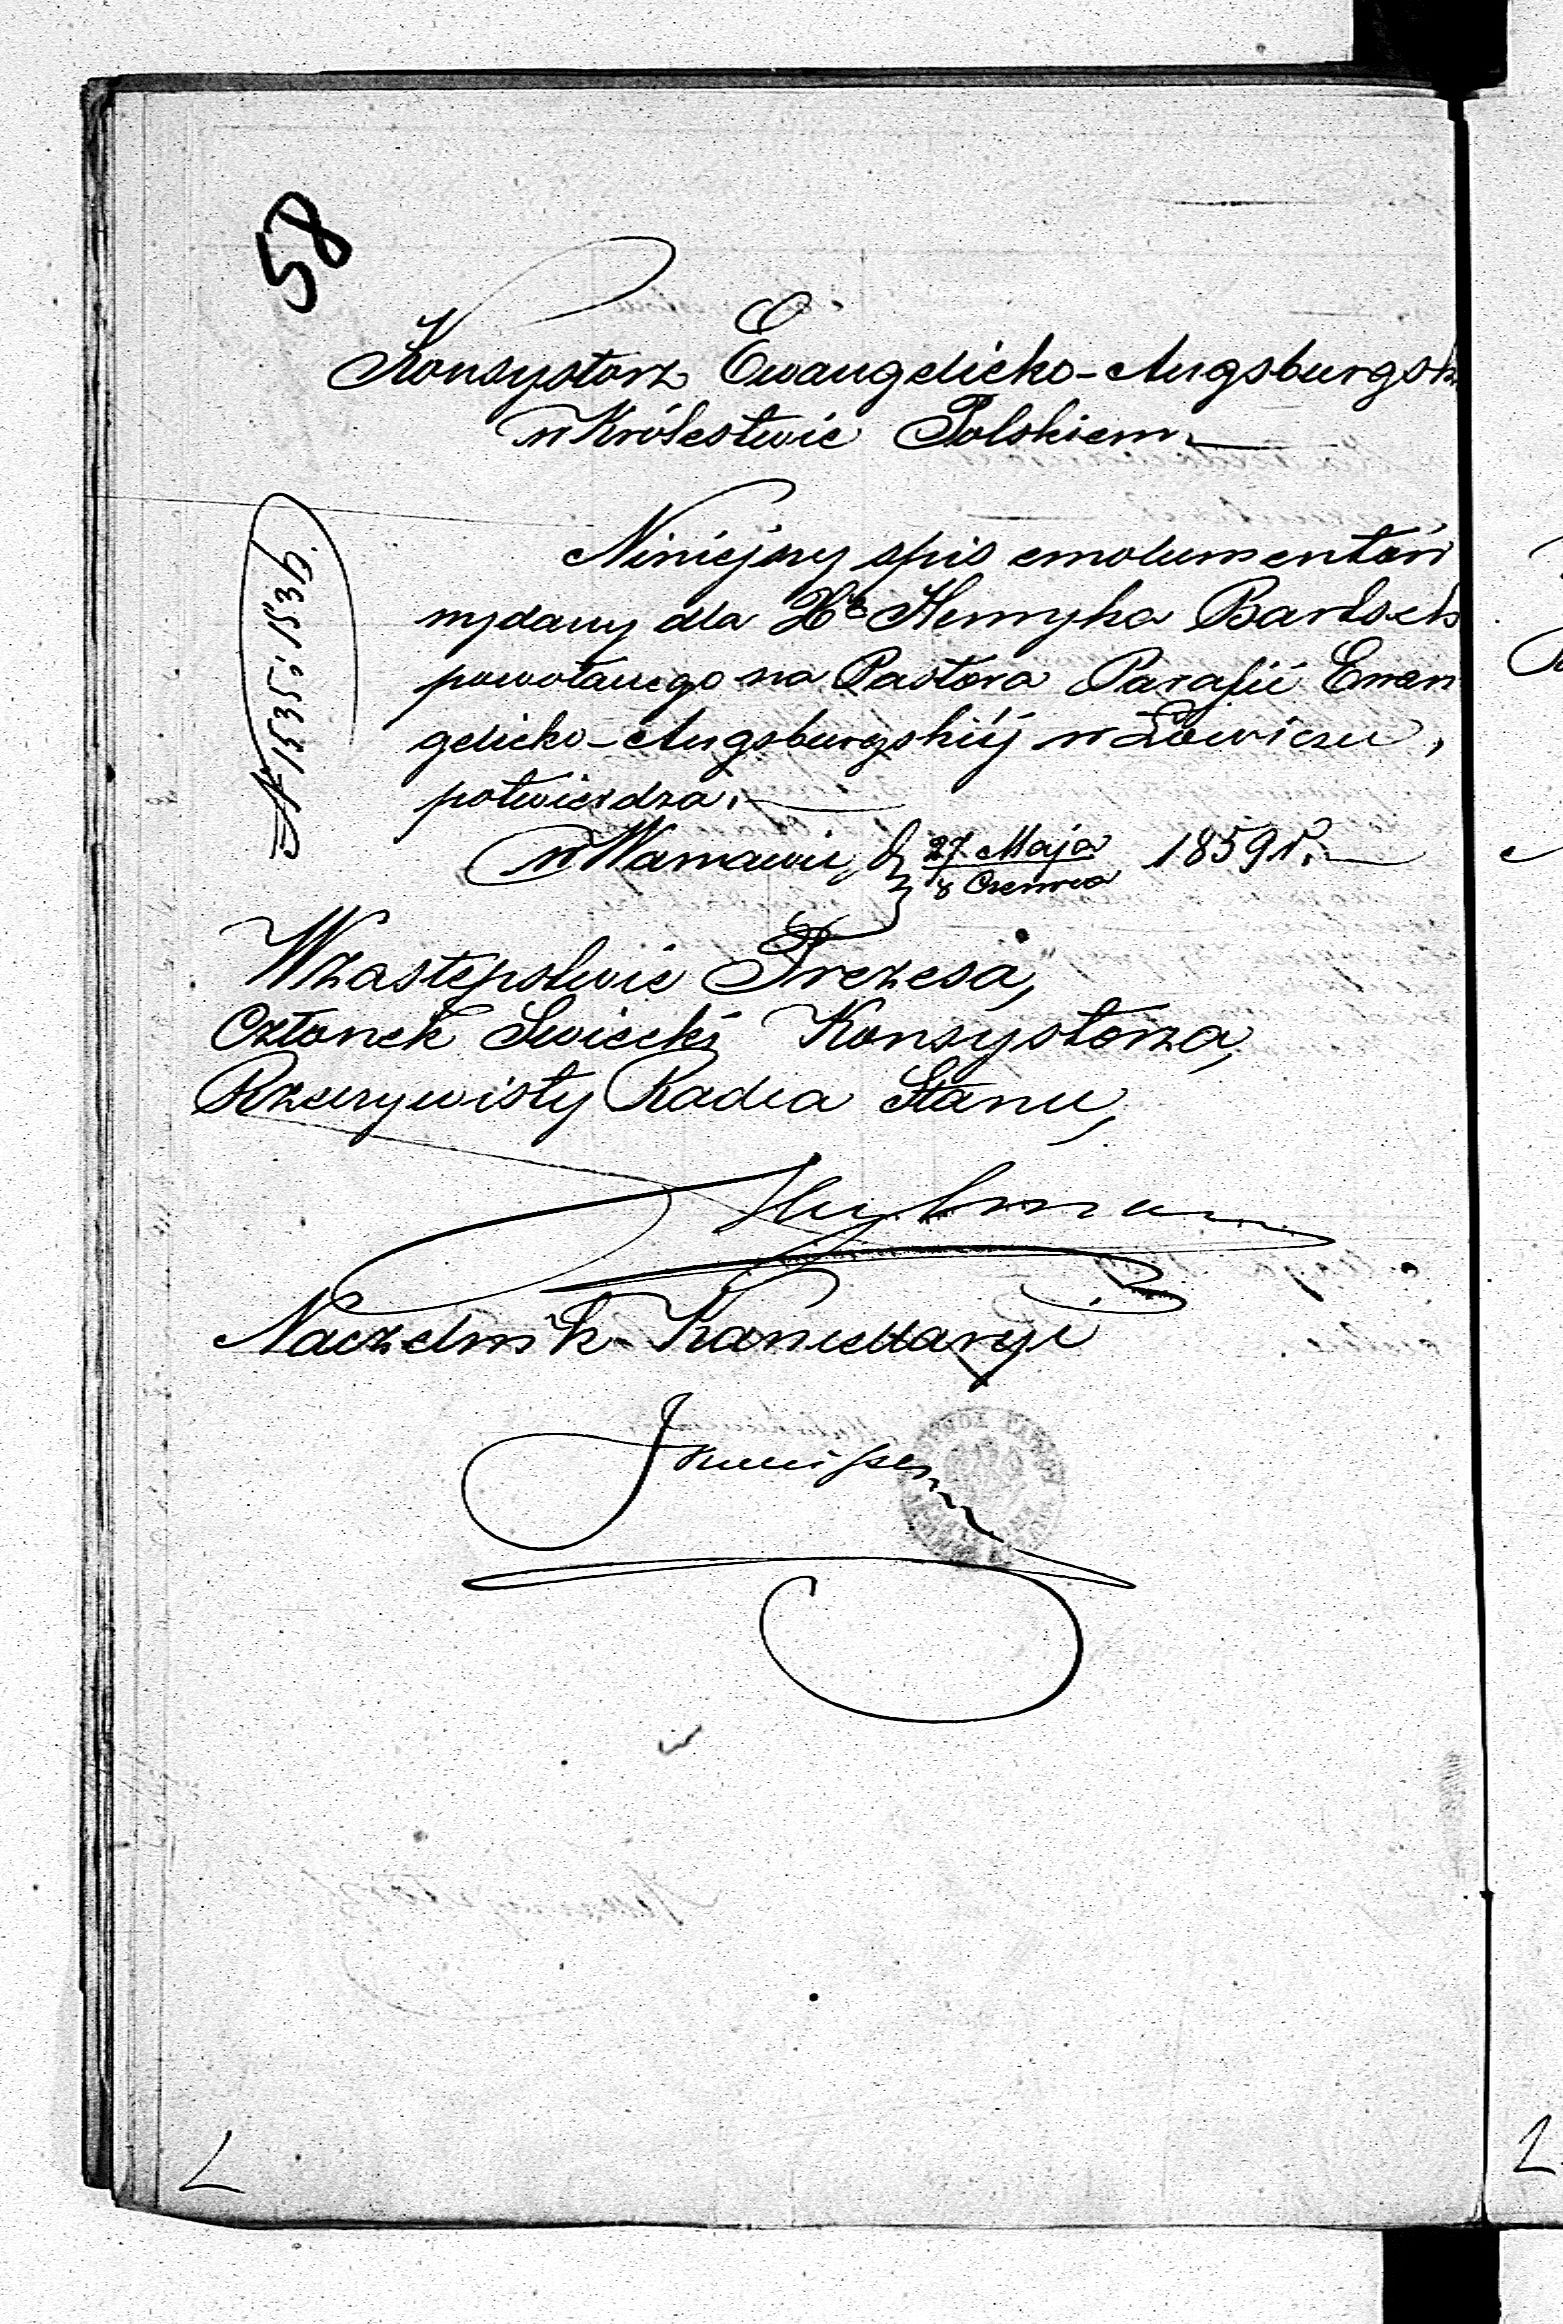 58
Konsystorz Ewangelicko-Augsburgsk
w Królestwie Polskiem
Niniejszy spis emolumentów
wydany dla Xa Henryka Bartsch
powołanego na Pastora Parafii Ewan
gelicko-Augsburgskiéj w Łowiczu,
potwierdza.
w Warszawie, d. 27 Maja 1859 r.
8 Czerwca
N 1535 i 1539.
W zastępstwie Prezesa,
Członek Swiecki Konsystorza,
Rzeczywisty Radca Stanu,
Naczelnik Kancellaryi